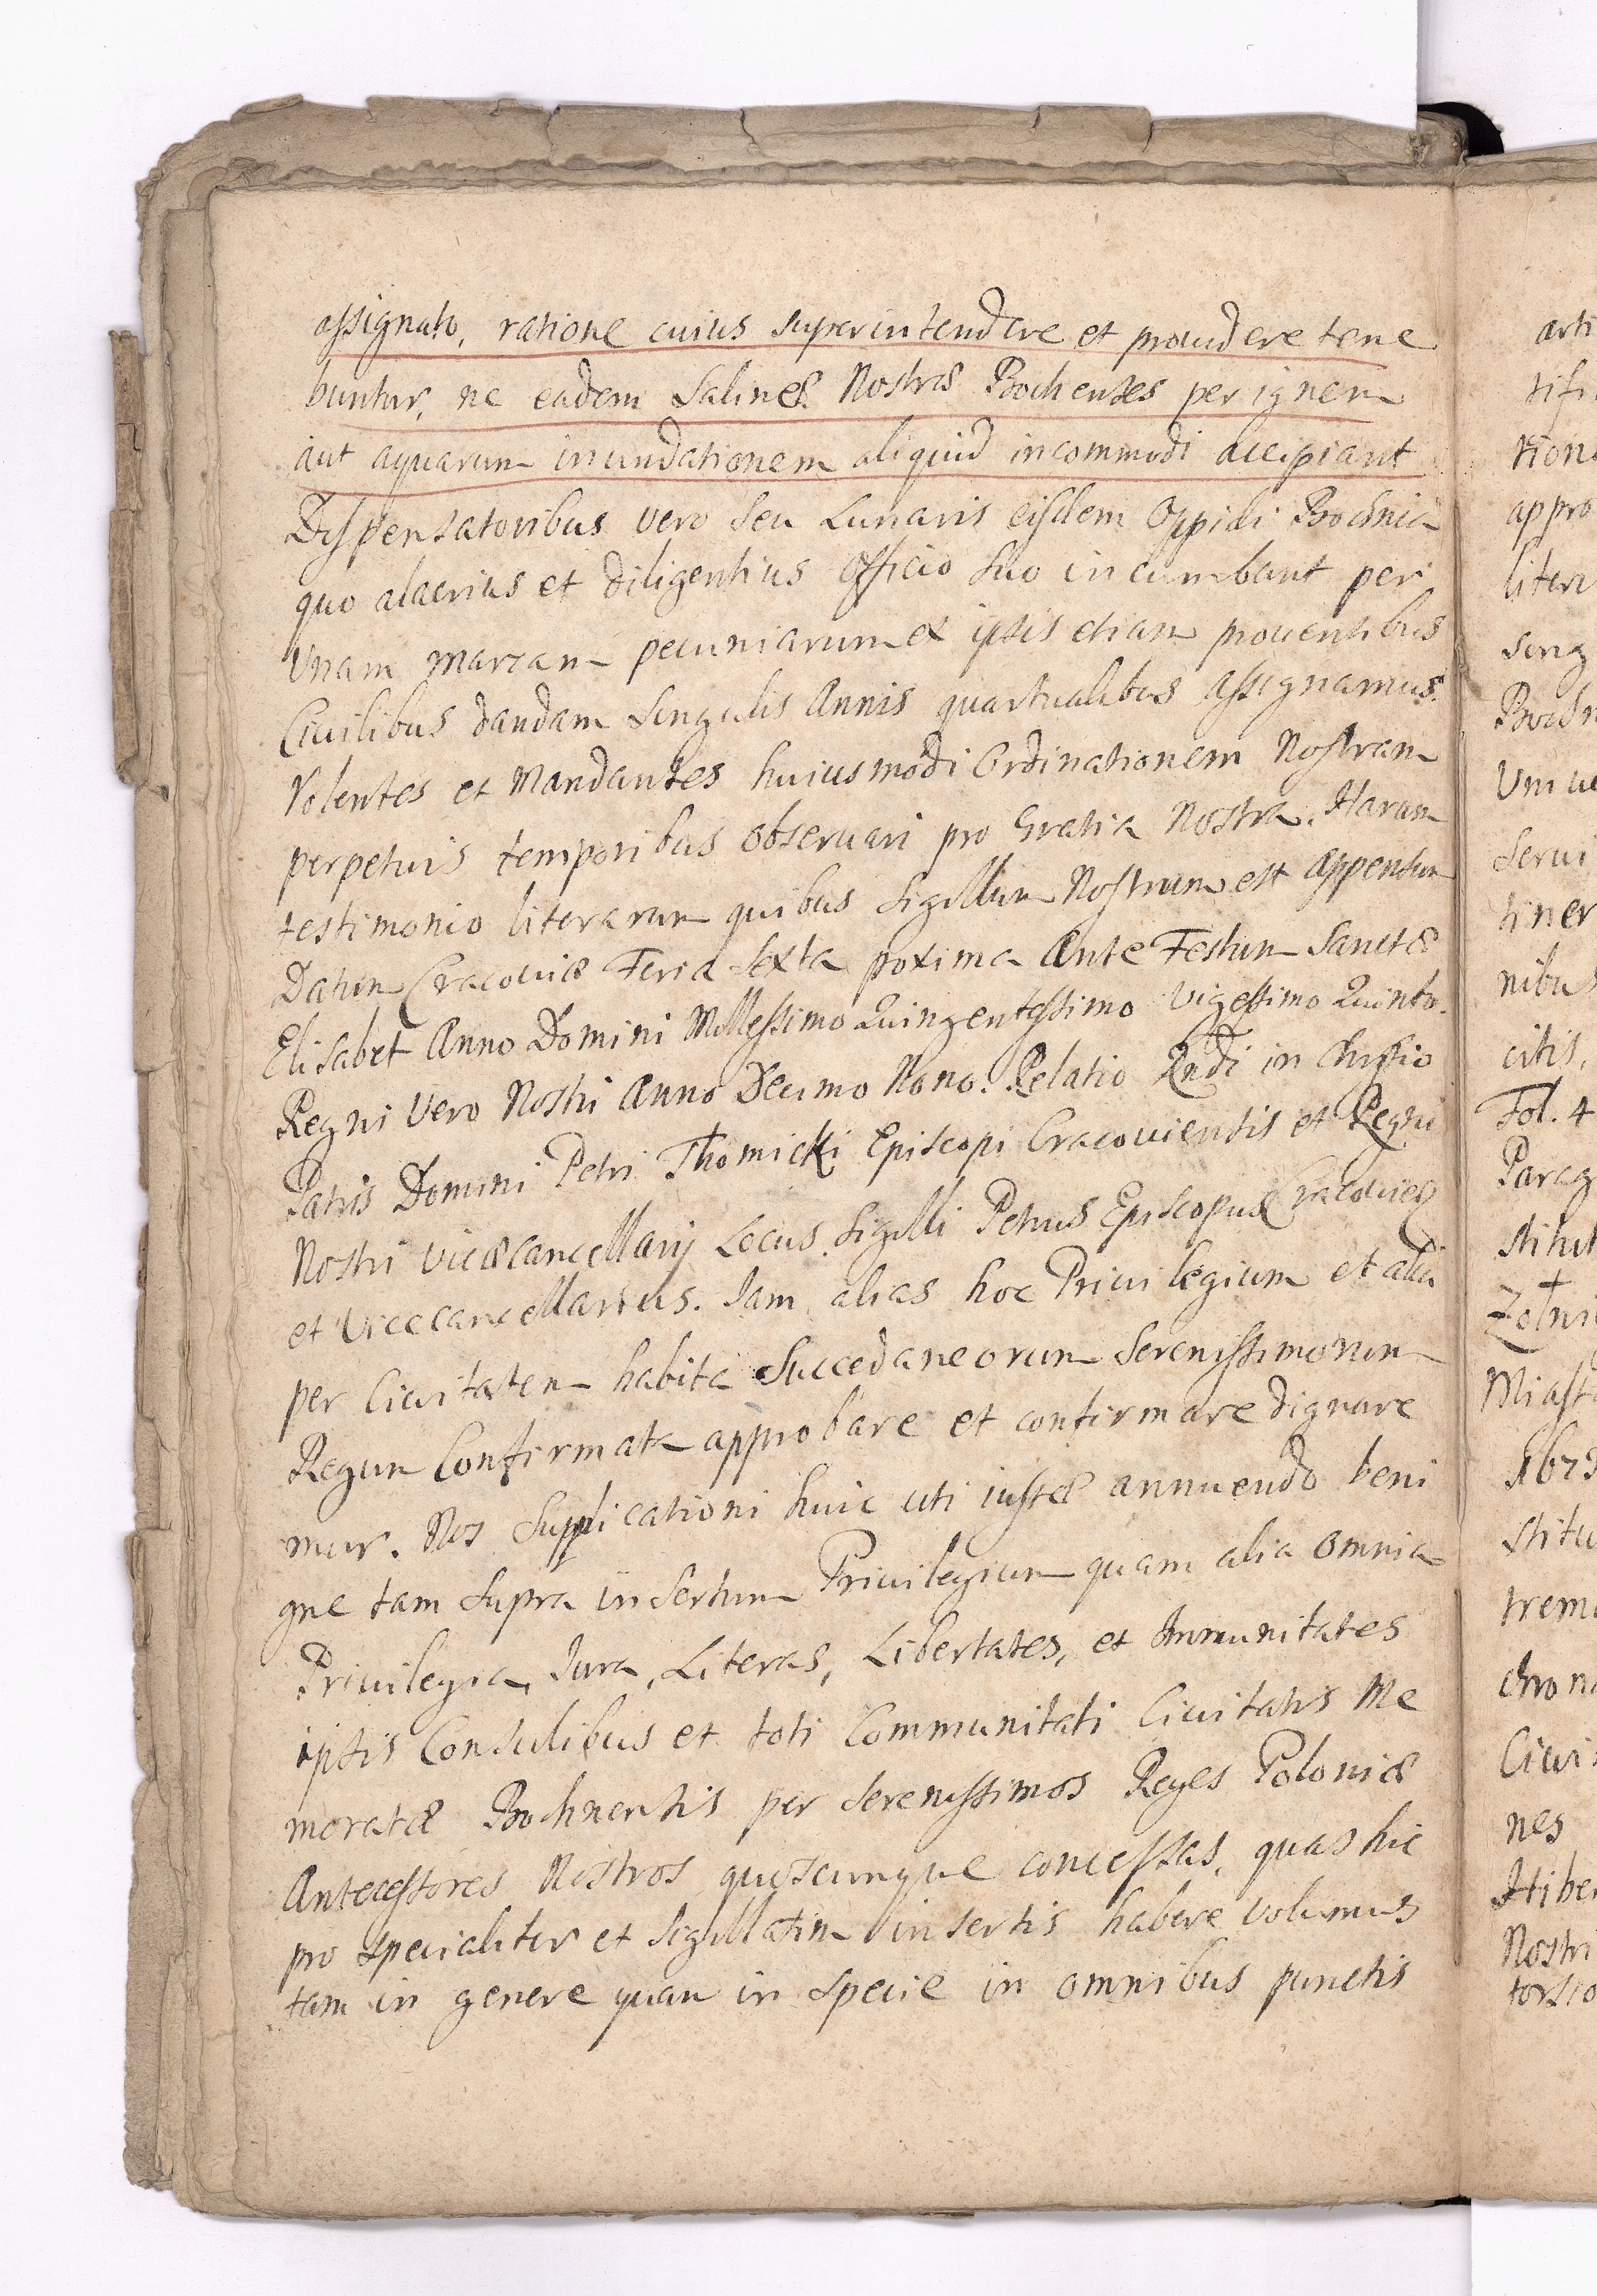 assignato, ratione cuius superintendere et providere tene
buntur, ne eadem Salinæ Nostræ Bochenses per ignem
aut aquarum inundationem aliquid incommodi accipiant
Dispensatoribus vero seu Lunaris eisdem Oppidi Bochnia
quo alacrius et diligentius Officio suo incumbant per
Unam marcam pecuniarum ex ipsis etiam prouentibus
Ciuilibus dandam singulis Annis quartualibus assignamus.
Volentes et Mandantes huiusmodi Ordinationem Nostram
perpetuis temporibus obseruari pro Gratia Nostra. Harum
testimonio literarum quibus Sigillum Nostrum est appensum
Datum Cracouiæ Feria Sexta poxima Ante Festum Sanctæ
Elisabet Anno Domini Millessimo Quingentessimo Vigessimo Quinto.
Regni Vero Nostri Anno Decimo Nono. Relatio Rndi in Christo
Patris Domini Petri Thomicki Episcopi Cracouiensis et Regni
Nostri Vicæcancellarij Locus Sigilli Petrus Episcopus Cracouien
et Vicecancellarius. Iam alias hoc Priuilegium et alia
per Ciuitatem habita Succedaneorum Serenissimorum
Regum Confirmata approbare et confirmare dignare
mur. Nos Supplicationi huic uti iustæ annuendo beni
gne tam supra insertum Priuilegium quam alia omnia
Priuilegia, Iura, Literas, Libertates, et Immunitates
ipsis Consulibus et toti Communitati Ciuitatis Me
moratæ Bochnensis per Serenissimos Reges Poloniæ
Antecessores Nostros quoscunque concessas, quas hic
pro specialiter et sigillatim insertis habere volumus
tam in genere quam in specie in omnibus punctis
arti
tifi
tion
appro
liter
sing
Bochn
Uni ue
Serui
tiner
nibus
citis,
Fol. 4
Parag
stitut
Zołni
Miast
1673
stitu
trem
chron
Ciui
nes
Hiber
Nostri